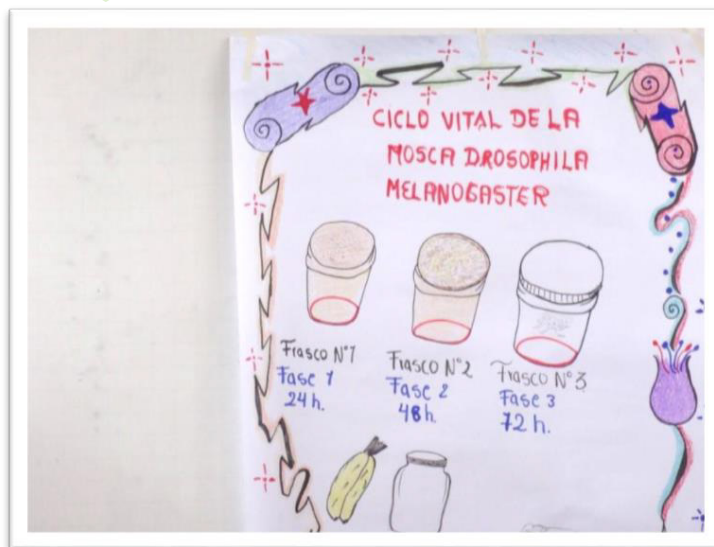 CICLO VITAL DE LA
MOSCA DROSOPHILA
MELANOGASTER
Frasco N°1
Fase 1
24 h.
Frasco N°2
Fase 2
48 h.
Frasco N°3
Fase 3
72 h.